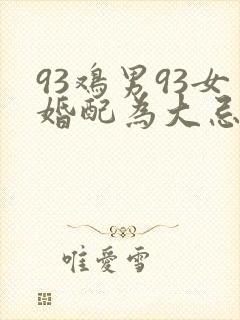 93鸡男93女
婚配为大忌
唯爱雪